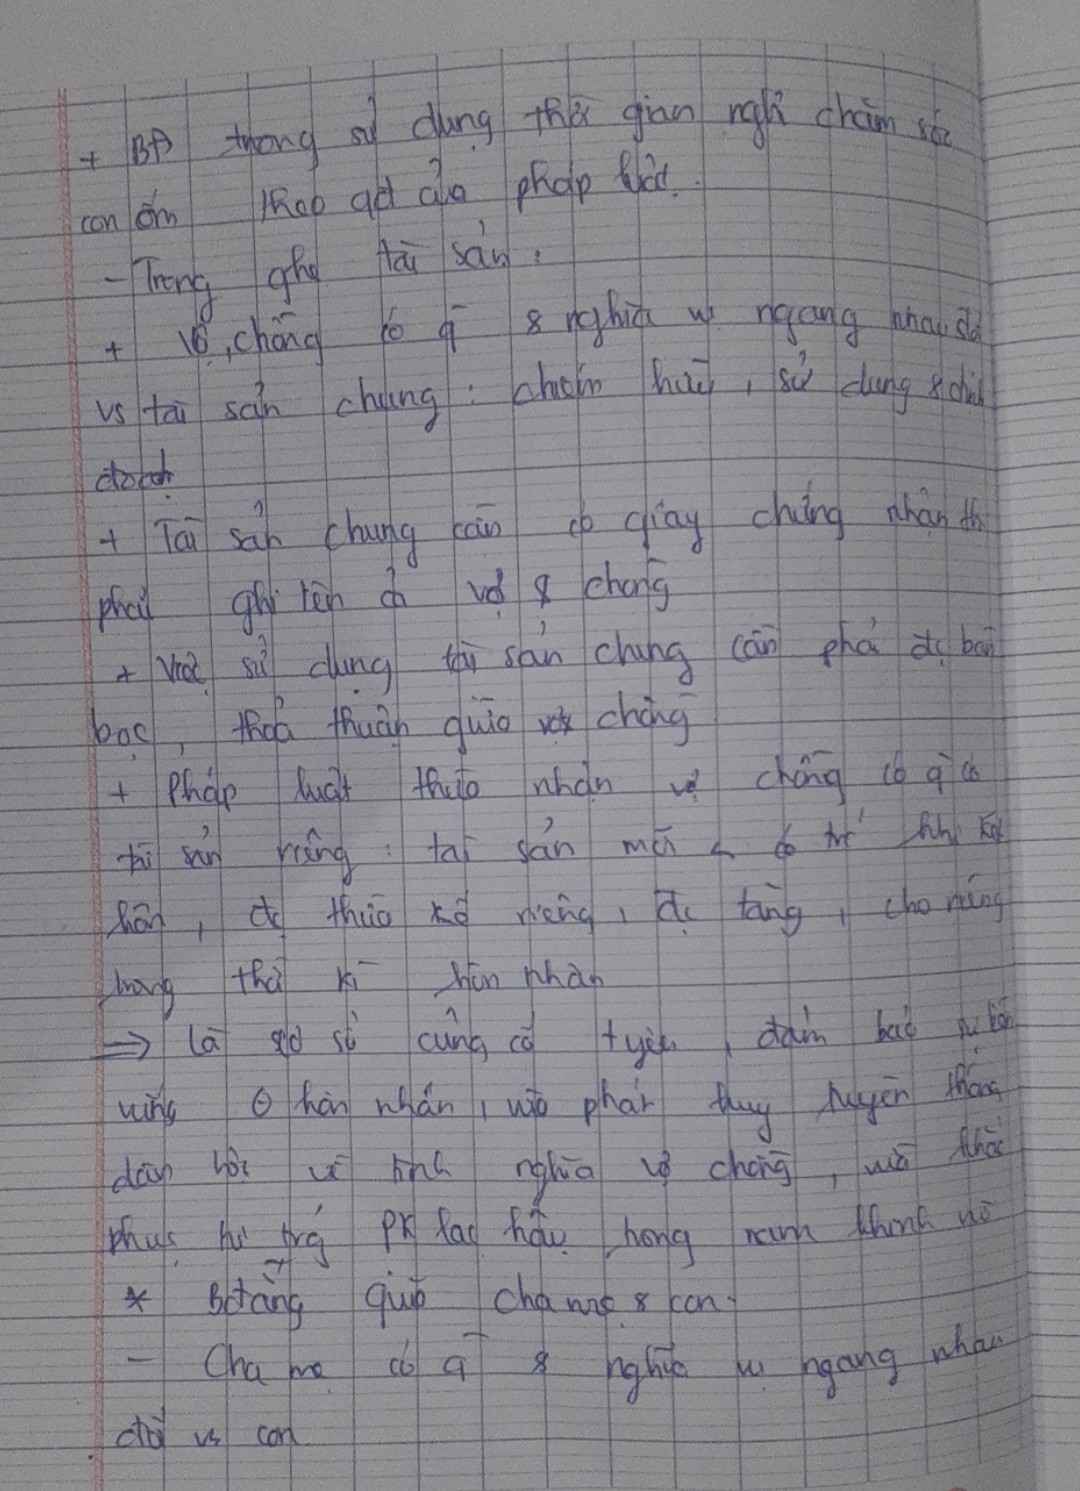 + BĐ trong sử dụng thời gian nghỉ chăm sóc
con ốm theo qđ của pháp luật.
- Trong qhệ tài sản:
+ Vợ, chồng có q̄ & nghĩa vụ ngang nhau đối
vs tài sản chung: chiếm hữu, sử dụng & định
đoạt
+ Tài sản chung cần có giấy chứng nhận thì
phải ghi tên cả vợ & chồng
+ Việc sử dụng tài sản chung cần phải đc bàn
bạc, thoả thuận giữa vợ chồng
+ Pháp luật thừa nhận vợ chồng có q̄ có
tài sản riêng: tài sản mỗi có trc khi kết
hôn, đc thừa kế riêng, đc tặng, cho riêng
trong thời kì hôn nhân
=> Là cơ sở củng cố tyêu, đảm bảo sự bền
vững hôn nhân, vừa phát huy truyền thống
dân tộc về tình nghĩa vợ chồng, vừa khắc
phục tư tưởng PK lạc hậu trọng nam khinh nữ
* Bđẳng giữa cha mẹ & con.
- Cha mẹ có q̄ & nghĩa vụ ngang nhau
đối vs con